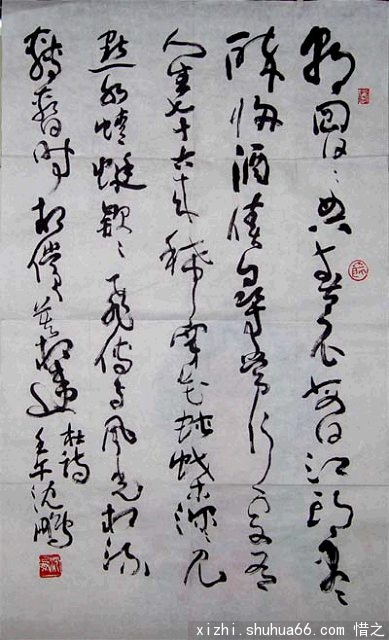 朝回日日典春衣每日江頭盡
醉歸酒債尋常行處有
人生七十古來稀穿花蛺蝶深深見
點水蜻蜓款款飛傳語風光共流
轉暫時相賞莫相違
杜詩
壬午沈鵬
xizhi.shuhua66.com 惜之